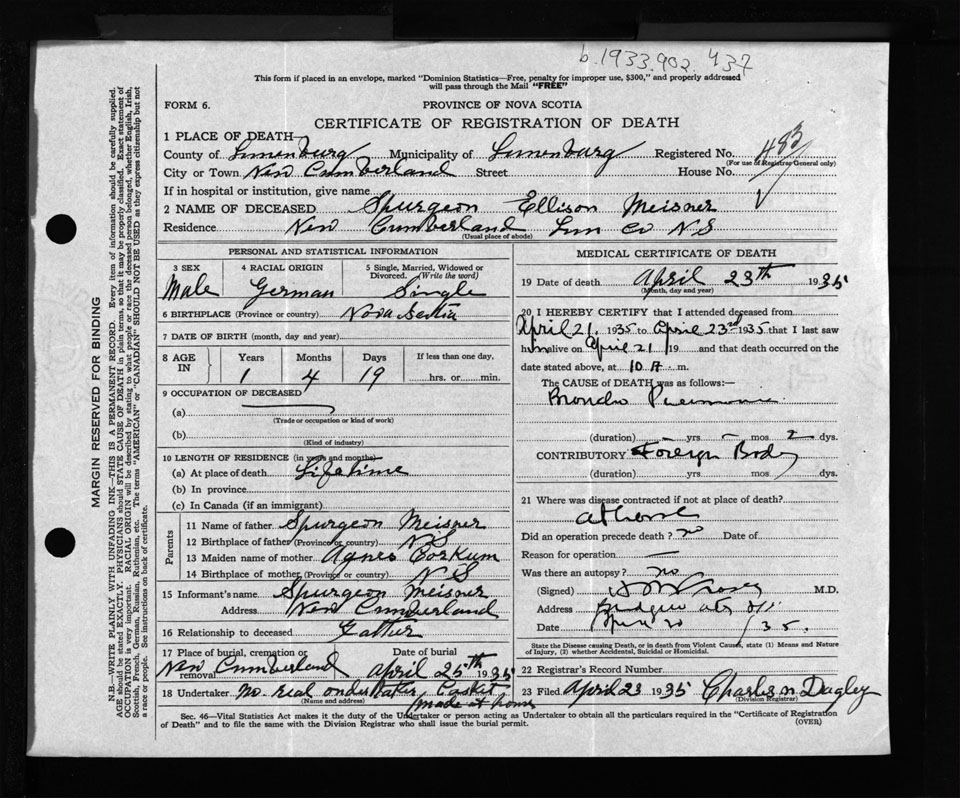 b.1933.902 437
This form if placed in an envelope, marked "Dominion Statistics—Free, penalty for improper use, $300," and properly addressed
will pass through the Mail "FREE"
FORM 6.
PROVINCE OF NOVA SCOTIA
CERTIFICATE OF REGISTRATION OF DEATH
1 PLACE OF DEATH
County of Lunenburg Municipality of Lunenburg Registered No. 483
(For use of Registrar General only)
City or Town New Cumberland Street House No.
If in hospital or institution, give name
2 NAME OF DECEASED Spurgeon Ellison Meisner
Residence New Cumberland Lun Co N.S
(Usual place of abode)
PERSONAL AND STATISTICAL INFORMATION
3 SEX 4 RACIAL ORIGIN 5 Single, Married, Widowed or Divorced. (Write the word)
Male German Single
6 BIRTHPLACE (Province or country) Nova Scotia
7 DATE OF BIRTH (month, day and year)
8 AGE IN Years Months Days If less than one day,
1 4 19 hrs. or min.
9 OCCUPATION OF DECEASED
(a)
(Trade or occupation or kind of work)
(b)
(Kind of industry)
10 LENGTH OF RESIDENCE (in years and months)
(a) At place of death Lifetime
(b) In province
(c) In Canada (if an immigrant)
Parents
11 Name of father Spurgeon Meisner
12 Birthplace of father (Province or country) N S
13 Maiden name of mother Agnes Corkum
14 Birthplace of mother (Province or country) N S
15 Informant's name Spurgeon Meisner
Address New Cumberland
16 Relationship to deceased Father
17 Place of burial, cremation or removal Date of burial
New Cumberland April 25th 1935
18 Undertaker No real undertaker, Casket
(Name and address) made at home
MEDICAL CERTIFICATE OF DEATH
19 Date of death April 23th 1935
(Month, day and year)
20 I HEREBY CERTIFY that I attended deceased from
April 21, 1935 to April 23rd 1935 that I last saw
him alive on April 21 19 and that death occurred on the
date stated above, at 10 A m.
The CAUSE OF DEATH was as follows:—
Broncho Pneumonia
(duration) yrs – mos 2 dys.
CONTRIBUTORY Foreign Body
(duration) yrs mos dys.
21 Where was disease contracted if not at place of death?
at home
Did an operation precede death? no Date of
Reason for operation —
Was there an autopsy? no
(Signed) M.D.
Address
Date 35.
State the Disease causing Death, or in death from Violent Causes, state (1) Means and Nature
of Injury, (2) whether Accidental, Suicidal or Homicidal.
22 Registrar's Record Number
23 Filed April 23 1935 Charles N Dagley
(Division Registrar)
Sec. 46—Vital Statistics Act makes it the duty of the Undertaker or person acting as Undertaker to obtain all the particulars required in the "Certificate of Registration
of Death" and to file the same with the Division Registrar who shall issue the burial permit. (OVER)
MARGIN RESERVED FOR BINDING
N.B.—WRITE PLAINLY WITH UNFADING INK—THIS IS A PERMANENT RECORD. Every item of information should be carefully supplied.
AGE should be stated EXACTLY. PHYSICIANS should STATE CAUSE OF DEATH in plain terms, so that it may be properly classified. Exact statement of
OCCUPATION is very important. RACIAL ORIGIN will be described by stating to what people or race the deceased person belonged, whether English, Irish,
Scottish, French, German, Russian, Ruthenian, etc. The terms "AMERICAN" or "CANADIAN" SHOULD NOT BE USED as they express citizenship but not
a race or people. See instructions on back of certificate.